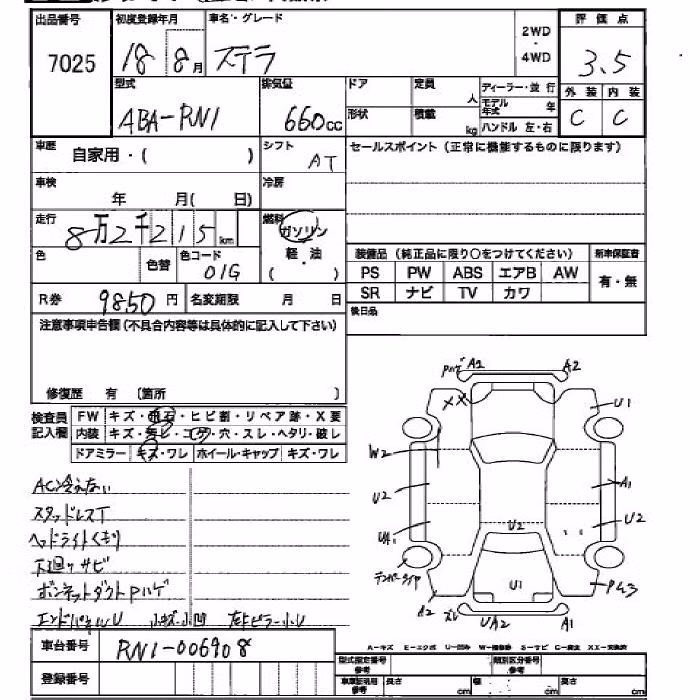 出品番号 初度登録年月 車名・グレード 評価点
7025 18 8月 ステラ 2WD・4WD 3.5
型式 排気量 ドア 定員 人 ディーラー・並行 外装 内装
ABA-RN1 660cc 形状 積載 kg モデル年式 年 C C
ハンドル 左・右
車歴 自家用・( ) シフト AT セールスポイント(正常に機能するものに限ります)
車検 年 月( 日) 冷房
走行 8万2千215km 燃料 ガソリン
軽・油
( )
色 色替 色コード 01G
装備品(純正品に限り○をつけてください) 新車保証書
PS PW ABS エアB AW 有・無
SR ナビ TV カワ
R券 9850円 名変期限 月 日 後日品
注意事項申告欄(不具合内容等は具体的に記入して下さい)
修復歴 有 〔箇所 〕
検査員記入欄 FW キズ・飛石・ヒビ割・リペア跡・X要
内装 キズ・ヨゴレ・コゲ・穴・スレ・ヘタリ・破レ
ドアミラー キズ・ワレ ホイール・キャップ キズ・ワレ
Pハゲ A2 A2
XX U1
W2
U2 A1
UA1 U2 U2
テンパータイヤ U1 PW3
A2 ズレ UA2 A1
AC冷えない
スタッドレスT
ヘッドライトくもり
下廻りサビ
ボンネットダクトPハゲ
エンドパネルU 小キズ・小凹 左Bピラー小U
A-キズ E-エクボ U-凹み W-補修跡 S-サビ C-腐食 XX-交換済
車台番号 RN1-006908
型式指定番号 参考 類別区分番号 参考
登録番号 車車証明用 参考 長さ cm 幅 cm 高さ cm